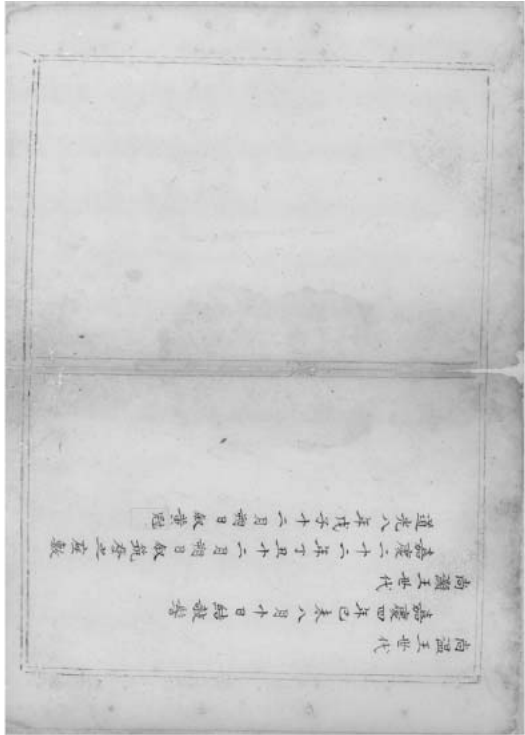 尚温王世代
嘉慶四年己未八月十日結敧髻
尚灝王世代
嘉慶二十二年丁丑十二月朔日敘筑登之座敷
道光八年戊子十二月朔日敘黄冠